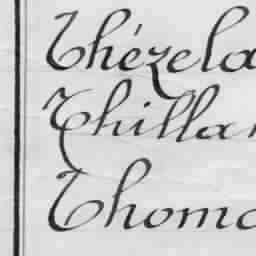 Thézela
Thillar
Thoma